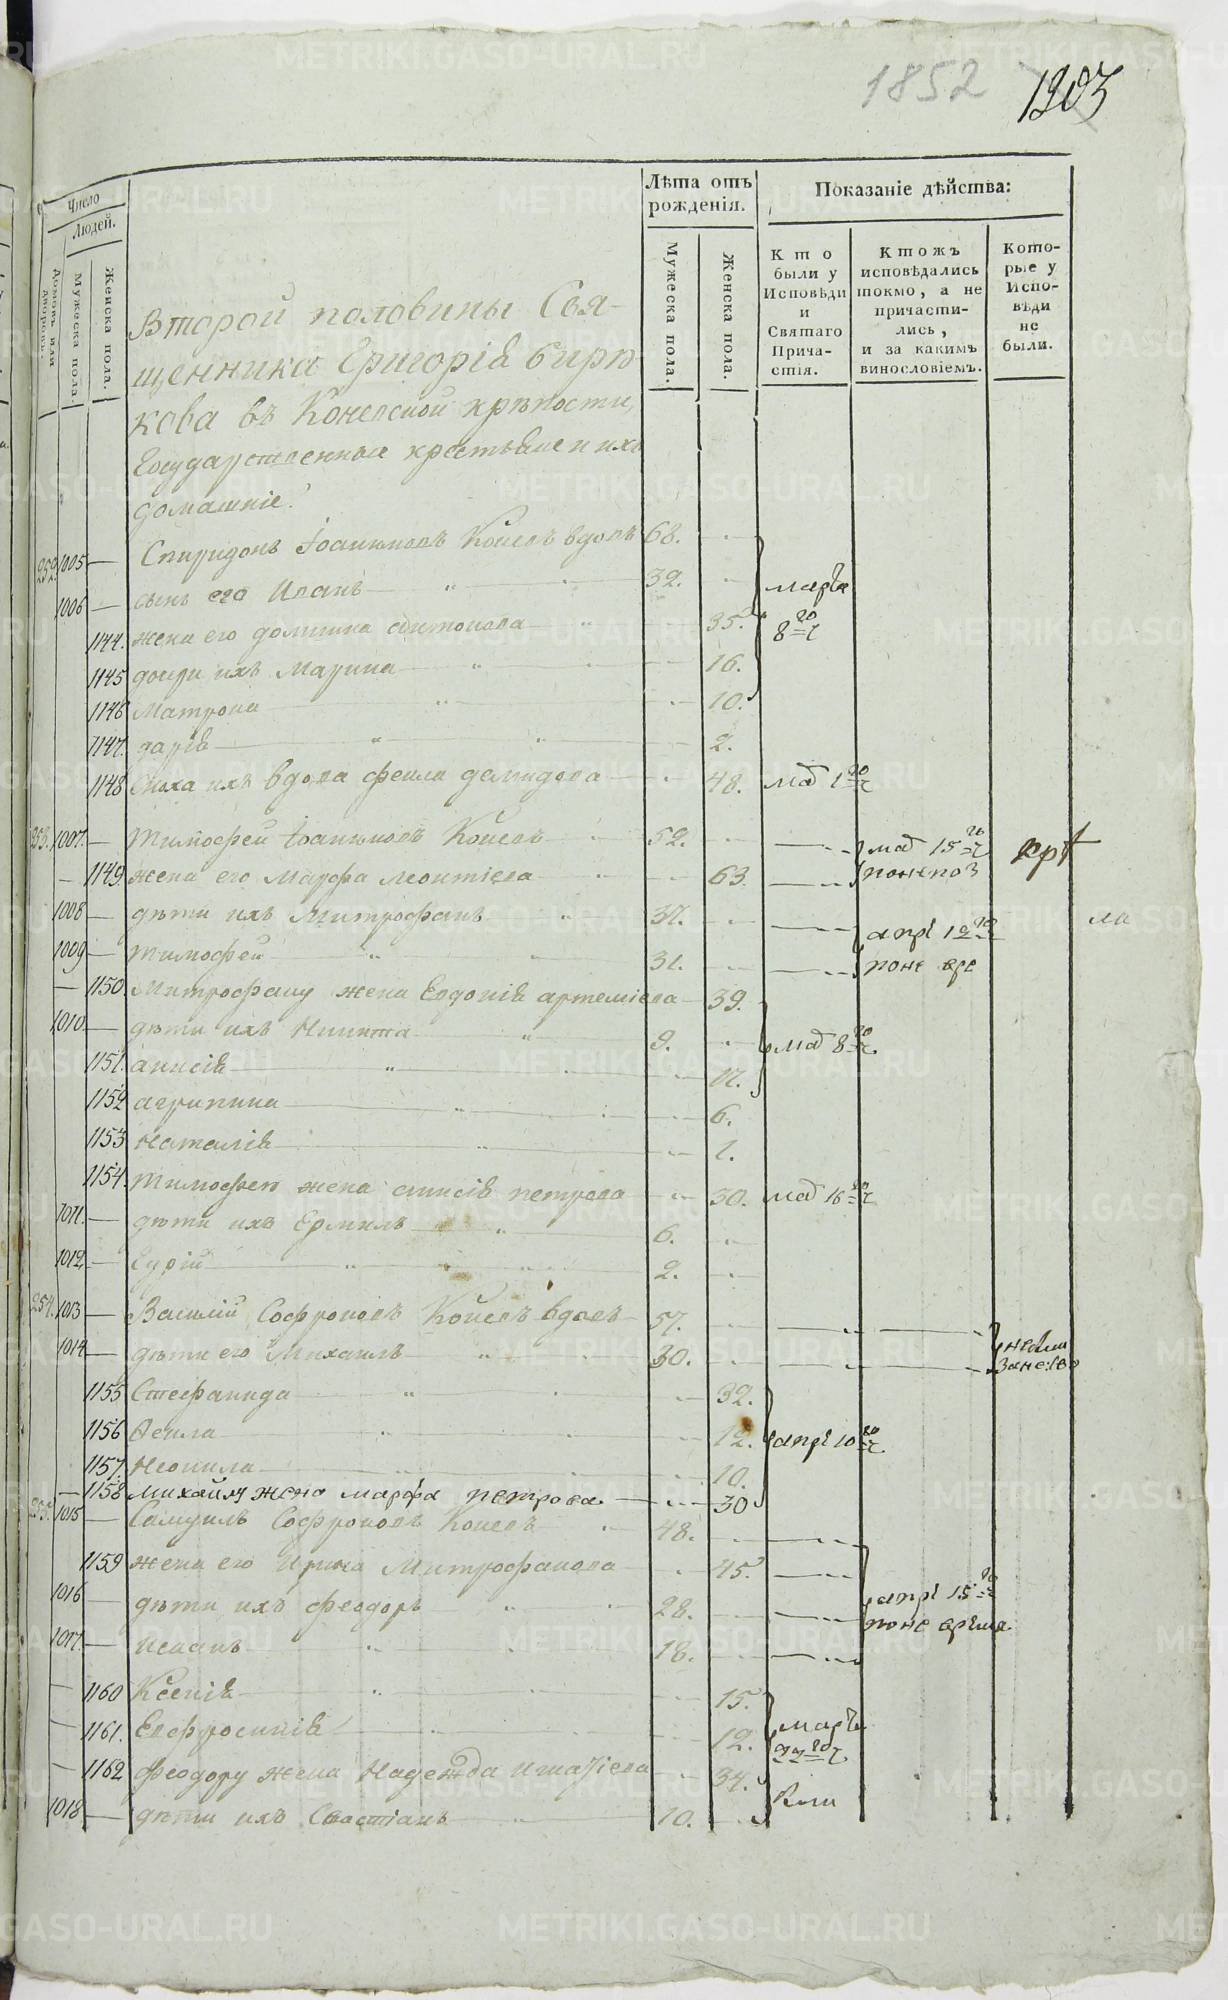 1852 1903
Число
Людей.
Домовъ или дворовъ.
Мужеска пола.
Женска пола.
Лѣта отъ рожденія.
Мужеска пола.
Женска пола.
Показаніе дѣйства:
Кто были у Исповѣди и Святаго Причастія.
Ктожъ исповѣдались токмо, а не причастились, и за какимъ винословіемъ.
Которые у Исповѣди не были.
Второй половины Свя-
щенника Григорія Бирю
кова въ Конелской крѣпости,
Государственные крестьяне и ихъ
домашніе.
252 1005 — Спиридонъ Іоакимовъ Коневъ вдовъ 68.
1006 — сынъ его Иванъ 32. марта
1144. жена его домнина 35. 8
1145 дочери ихъ Марина 16.
1146 Матрона 10.
1147. дарія 2.
1148 Сноха ихъ вдова феила демидова 48. маі 1
253. 1007. Тимофей Іоакимовъ Коневъ 52. маі 15
1149 жена его Марфа Леонтіева 63.
1008 — дѣти ихъ Митрофанъ 37. апрі
1009 — Тимофей 31.
1150 Митрофану жена Евдокія артеміева 39.
1010 — дѣти ихъ Никита 9. маі 8
1151. анисія
1152 агрипина 6.
1153 Наталія 1.
1154. Тимофею жена анисія петрова 30. маі 16
1011. — дѣти ихъ Ермилъ 6.
1012. — Гурій 2.
254. 1013 — Василій Софроновъ Коневъ вдовъ 57.
1014 — дѣти его Михаилъ 30.
1155 Стефанида 32.
1156 Феила 12. апрі 10
1157. Неонила 10.
1158 михайлу жена марфа петрова 30
255. 1015 — Самуилъ Софроновъ Коневъ 48.
1159 жена его Ирина Митрофанова 45.
1016 — дѣти ихъ феодоръ 28. апрі 15
1017. — Исаакъ 18.
1160 Ксенія 15.
1161. Евфросинія 12. марта
1162 феодору жена Надежда 34.
1018 — дѣти ихъ Савастіанъ 10.
METRIKI.GASO-URAL.RU